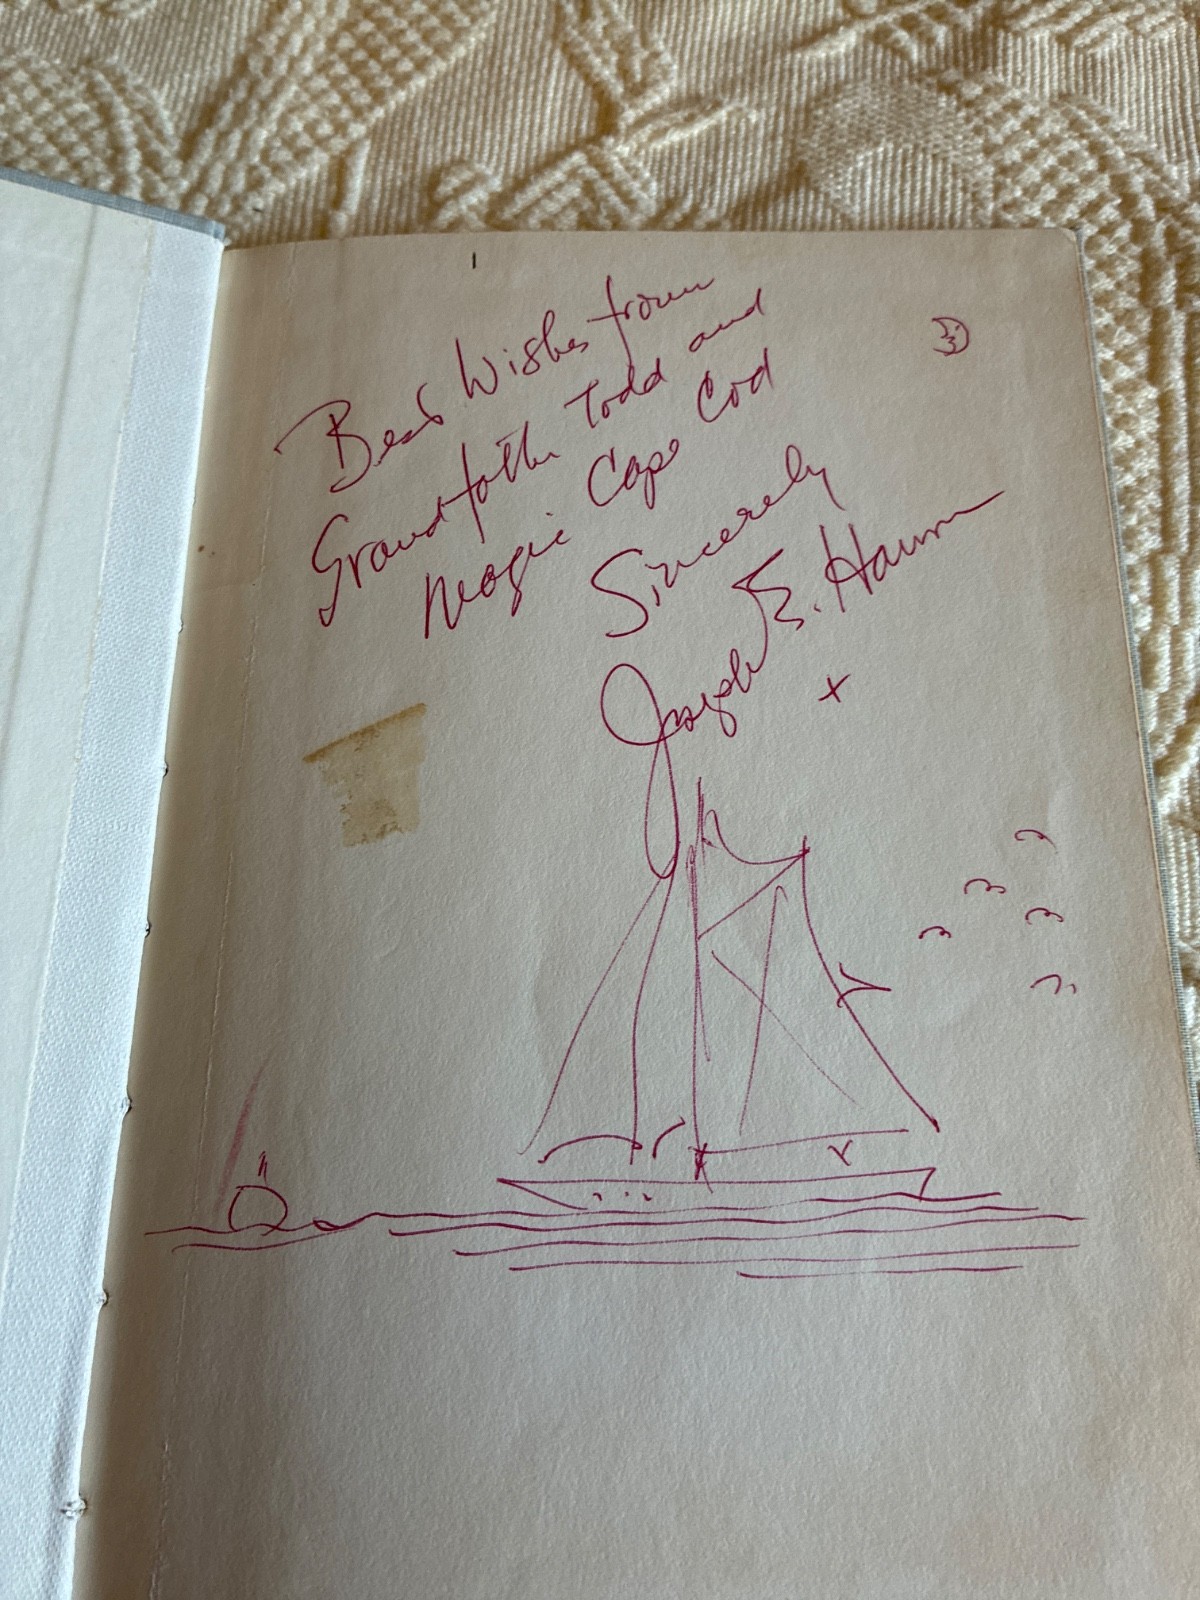 Best Wishes from
Grandfather Todd and
Magic Cape Cod
Sincerely
Joseph E.